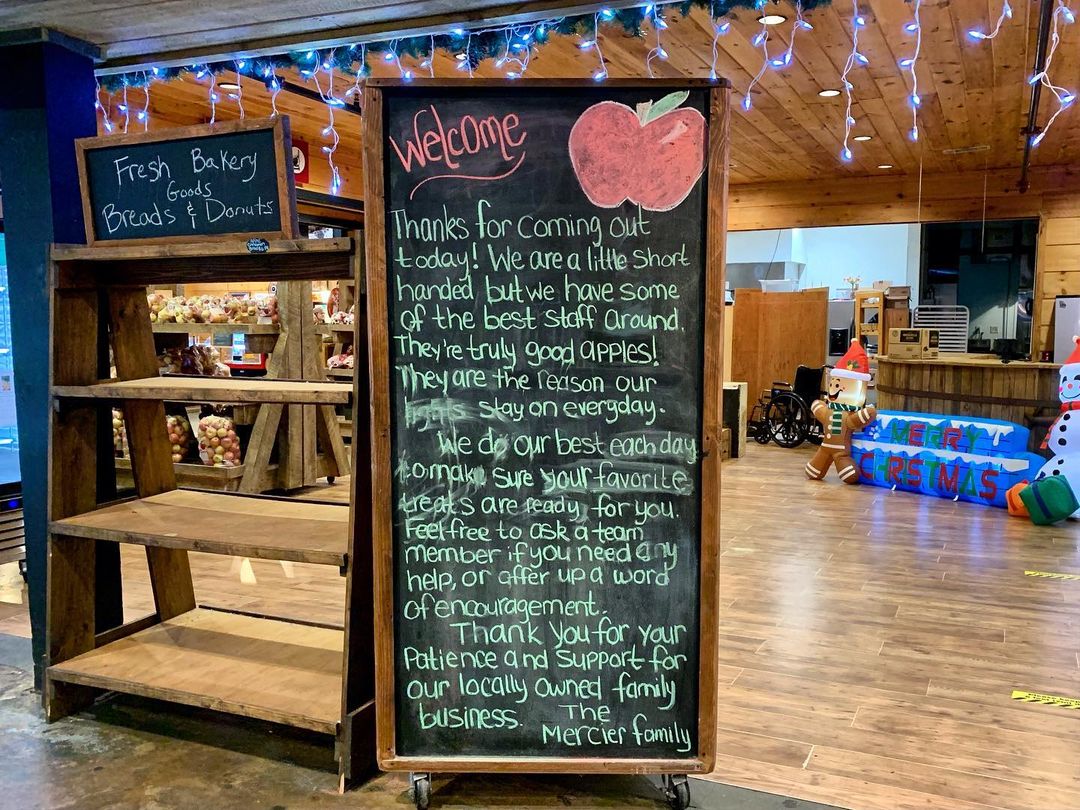 Fresh Bakery
Goods
Breads & Donuts
Welcome
Thanks for coming out
today! We are a little short
handed but we have some
of the best staff around.
They're truly good apples!
They are the reason our
lights stay on everyday.
We do our best each day
to make sure your favorite
treats are ready for you.
Feel free to ask a team
member if you need any
help, or offer up a word
of encouragement.
Thank you for your
Patience and Support for
our locally owned family
business. The
Mercier family
MERRY
CHRISTMAS